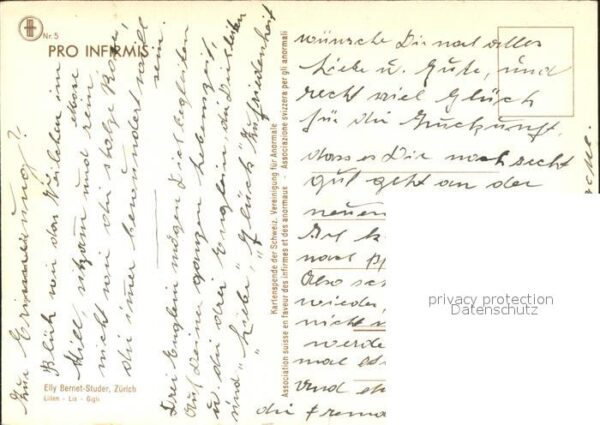 Nr. 5
PRO INFIRMIS
Zur Erinnerung?
Blüh wie das Veilchen im Moose
still, sittsam und rein
nicht wie die stolze Rose,
die imer bewundert will
sein.
Drei Englein mögen Dich begleiten
Auf deiner ganzen Lebenszeit,
u die drei Englein die Dich leiten
sind „Liebe", „Glück" Zufriedenheit
Elly Bernet-Studer, Zürich
Lilien - Lis - Gigli
Kartenspende der Schweiz. Vereinigung für Anormale · Associazione svizzera per gli anormali
Association suisse en faveur des infirmes et des anormaux
wünsche Dir nal alles
Liebe u. Gute, und
recht viel Glück
für die Zuckunft,
dass es Dir noch recht
gut geht an der
neuen
nach
Also
wieder,
nicht
werde
mal
Und
die
privacy protection
Datenschutz